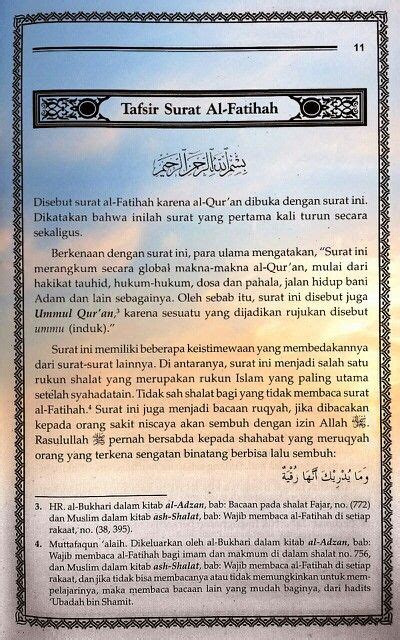 11
Tafsir Surat Al-Fatihah
بِسْمِ اللَّهِ الرَّحْمَنِ الرَّحِيمِ
Disebut surat al-Fatihah karena al-Qur'an dibuka dengan surat ini.
Dikatakan bahwa inilah surat yang pertama kali turun secara
sekaligus.
Berkenaan dengan surat ini, para ulama mengatakan, "Surat ini
merangkum secara global makna-makna al-Qur'an, mulai dari
hakikat tauhid, hukum-hukum, dosa dan pahala, jalan hidup bani
Adam dan lain sebagainya. Oleh sebab itu, surat ini disebut juga
Ummul Qur'an,³ karena sesuatu yang dijadikan rujukan disebut
ummu (induk)."
Surat ini memiliki beberapa keistimewaan yang membedakannya
dari surat-surat lainnya. Di antaranya, surat ini menjadi salah satu
rukun shalat yang merupakan rukun Islam yang paling utama
setelah syahadatain. Tidak sah shalat bagi yang tidak membaca surat
al-Fatihah.⁴ Surat ini juga menjadi bacaan ruqyah, jika dibacakan
kepada orang sakit niscaya akan sembuh dengan izin Allah ﷻ.
Rasulullah ﷺ pernah bersabda kepada shahabat yang meruqyah
orang yang terkena sengatan binatang berbisa lalu sembuh:
وَمَا يُدْرِيكَ أَنَّهَا رُقْيَةٌ
3. HR. al-Bukhari dalam kitab al-Adzan, bab: Bacaan pada shalat Fajar, no. (772)
dan Muslim dalam kitab ash-Shalat, bab: Wajib membaca al-Fatihah di setiap
rakaat, no. (38, 395).
4. Muttafaqun 'alaih. Dikeluarkan oleh al-Bukhari dalam kitab al-Adzan, bab:
Wajib membaca al-Fatihah bagi imam dan makmum di dalam shalat no. 756,
dan Muslim dalam kitab ash-Shalat, bab: Wajib membaca al-Fatihah di setiap
rakaat, dan jika tidak bisa membacanya atau tidak memungkinkan untuk mem-
pelajarinya, maka membaca bacaan lain yang mudah baginya, dari hadits
'Ubadah bin Shamit.